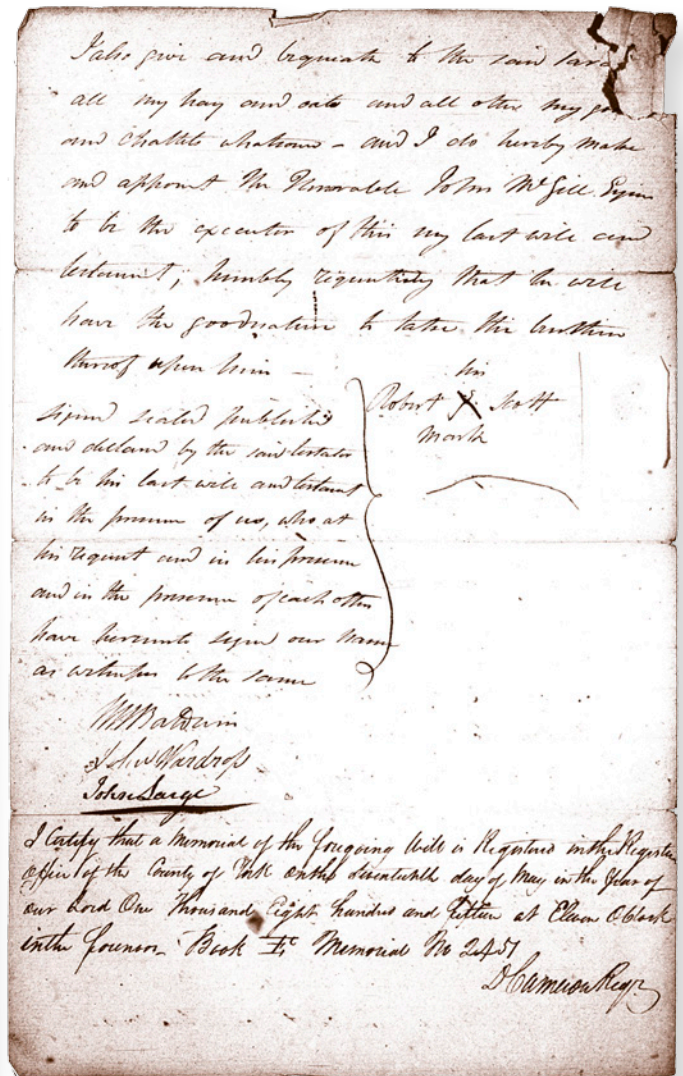 I also give and bequeath to the said Sara
all my hay and oats and all other my
and Chattels whatsoever – and I do hereby make
and appoint the Honorable John McGill Esquire
to be the executor of this my last will and
testament; humbly requesting that he will
have the goodnature to take the burthen
thereof upon him –
his
Robert X Scott
mark
signed sealed published
and declared by the said testator
to be his last will and testament
in the presence of us, who at
his request and in his presence
and in the presence of each other
have hereunto signed our names
as witnesses to the same
WWBaldwin
John Wardrop
John
I Certify that a Memorial of the foregoing Will is Registered in the Register
office of the County of York on the day of May in the Year of
our Lord One Thousand Eight hundred and fifteen at Eleven OClock
in the forenoon – Book Memorial No 2451
DCameron Regr